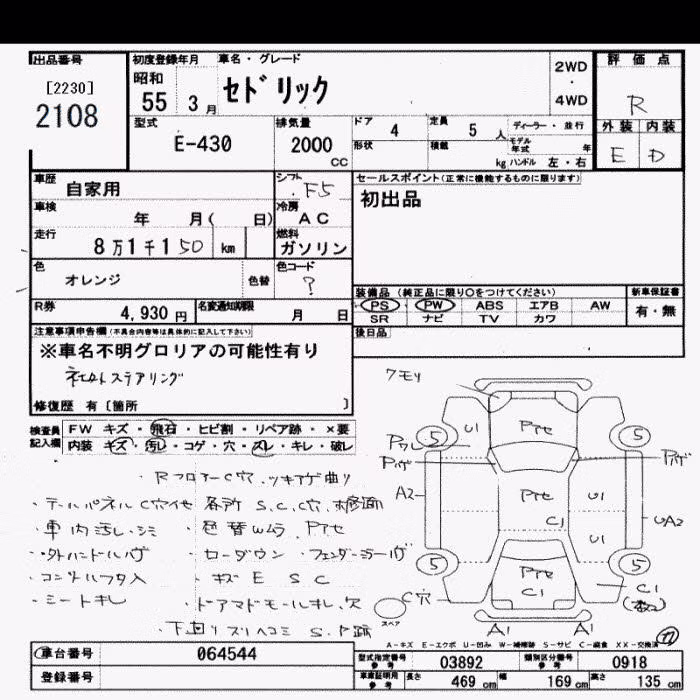 出品番号
[2230]
2108
初度登録年月
昭和
55 3月
車名・グレード
セドリック
2WD
・
4WD
評価点
R
外装 内装
E D
型式
E-430
排気量
2000
CC
ドア 4
定員 5人
ディーラー・並行
形状
積載 kg
モデル年式 年
ハンドル 左・右
車歴
自家用
シフト
F5
セールスポイント(正常に機能するものに限ります)
初出品
車検
年 月( 日)
冷房
AC
走行
8万1千150 km
燃料
ガソリン
色
オレンジ
色替
色コード
?
装備品(純正品に限り○をつけてください)
PS PW ABS エアB AW
SR ナビ TV カワ
新車保証書
有・無
R券
4,930円
名変通知期限
月 日
後日品
注意事項申告欄(不具合内容等は具体的に記入して下さい)
※車名不明グロリアの可能性有り
ステアリング
修復歴 有 [箇所 ]
検査員
記入欄
FW キズ・飛石・ヒビ割・リペア跡・×要
内装 キズ・汚レ・コゲ・穴・スレ・キレ・破レ
RフロアーC穴、ツキアゲ曲り
・テールパネルC穴他 各所 S.C.C穴
・車内汚レ・シミ ・色替wムラ、Pアセ
・外ハンドルサゲ ・ローダウン・フェンダーミラー
・キズ E S C
・シートキレ ・ドアマドモールキレ、穴
・下回りスリヘコミ S.P跡
クモリ
U1
Pアセ
Pワレ
5
5
Pサゲ
A2
Pアセ
U1
C1
U1
UA2
5
5
Pアセ
C1
C1
C穴
スペア
A1
A1
A-キズ E-エクボ U-凹み W-補修跡 S-サビ C-腐食 XX-交換済
車台番号 064544
登録番号
型式指定番号
参考
03892
類別区分番号
参考
0918
車庫証明用
参考
長さ 469cm
幅 169cm
高さ 135cm